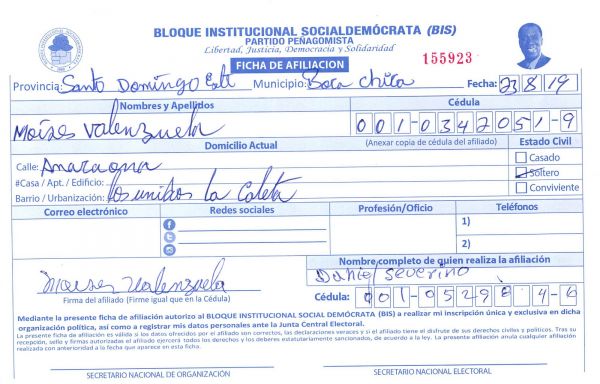 BLOQUE INSTITUCIONAL SOCIALDEMÓCRATA (BIS)
PARTIDO PEÑAGOMISTA
Libertad, Justicia, Democracia y Solidaridad
FICHA DE AFILIACION
155923
Provincia: Santo Domingo Est Municipio: Boca chica Fecha: 23 8 19
Nombres y Apellidos Cédula
Moises Valenzuela 001-0342051-9
Domicilio Actual (Anexar copia de cédula del afiliado) Estado Civil
Calle: Anacaona Casado
#Casa / Apt. / Edificio: Soltero
Barrio / Urbanización: los unidos la Caleta Conviviente
Correo electrónico Redes sociales Profesión/Oficio Teléfonos
1)
2)
Nombre completo de quien realiza la afiliación
Daniel Severino
Moises Valenzuela
Firma del afiliado (Firme igual que en la Cédula) Cédula: 001-05298 4-6
Mediante la presente ficha de afiliación autorizo al BLOQUE INSTITUCIONAL SOCIAL DEMÓCRATA (BIS) a realizar mi inscripción única y exclusiva en dicha
organización política, así como a registrar mis datos personales ante la Junta Central Electoral.
La presente ficha de afiliación es válida si los datos ofrecidos por el afiliado son correctos, las declaraciones veraces y si el afiliado tiene el disfrute de sus derechos civiles y políticos. Tras su
recepción, sello y firmas autorizadas el afiliado ejercerá todos los derechos y los deberes estatutariamente sancionados, de acuerdo a la ley. La presente afiliación anula cualquier afiliación
realizada con anterioridad a la fecha que aparece en esta ficha.
SECRETARIO NACIONAL DE ORGANIZACIÓN SECRETARIO NACIONAL ELECTORAL